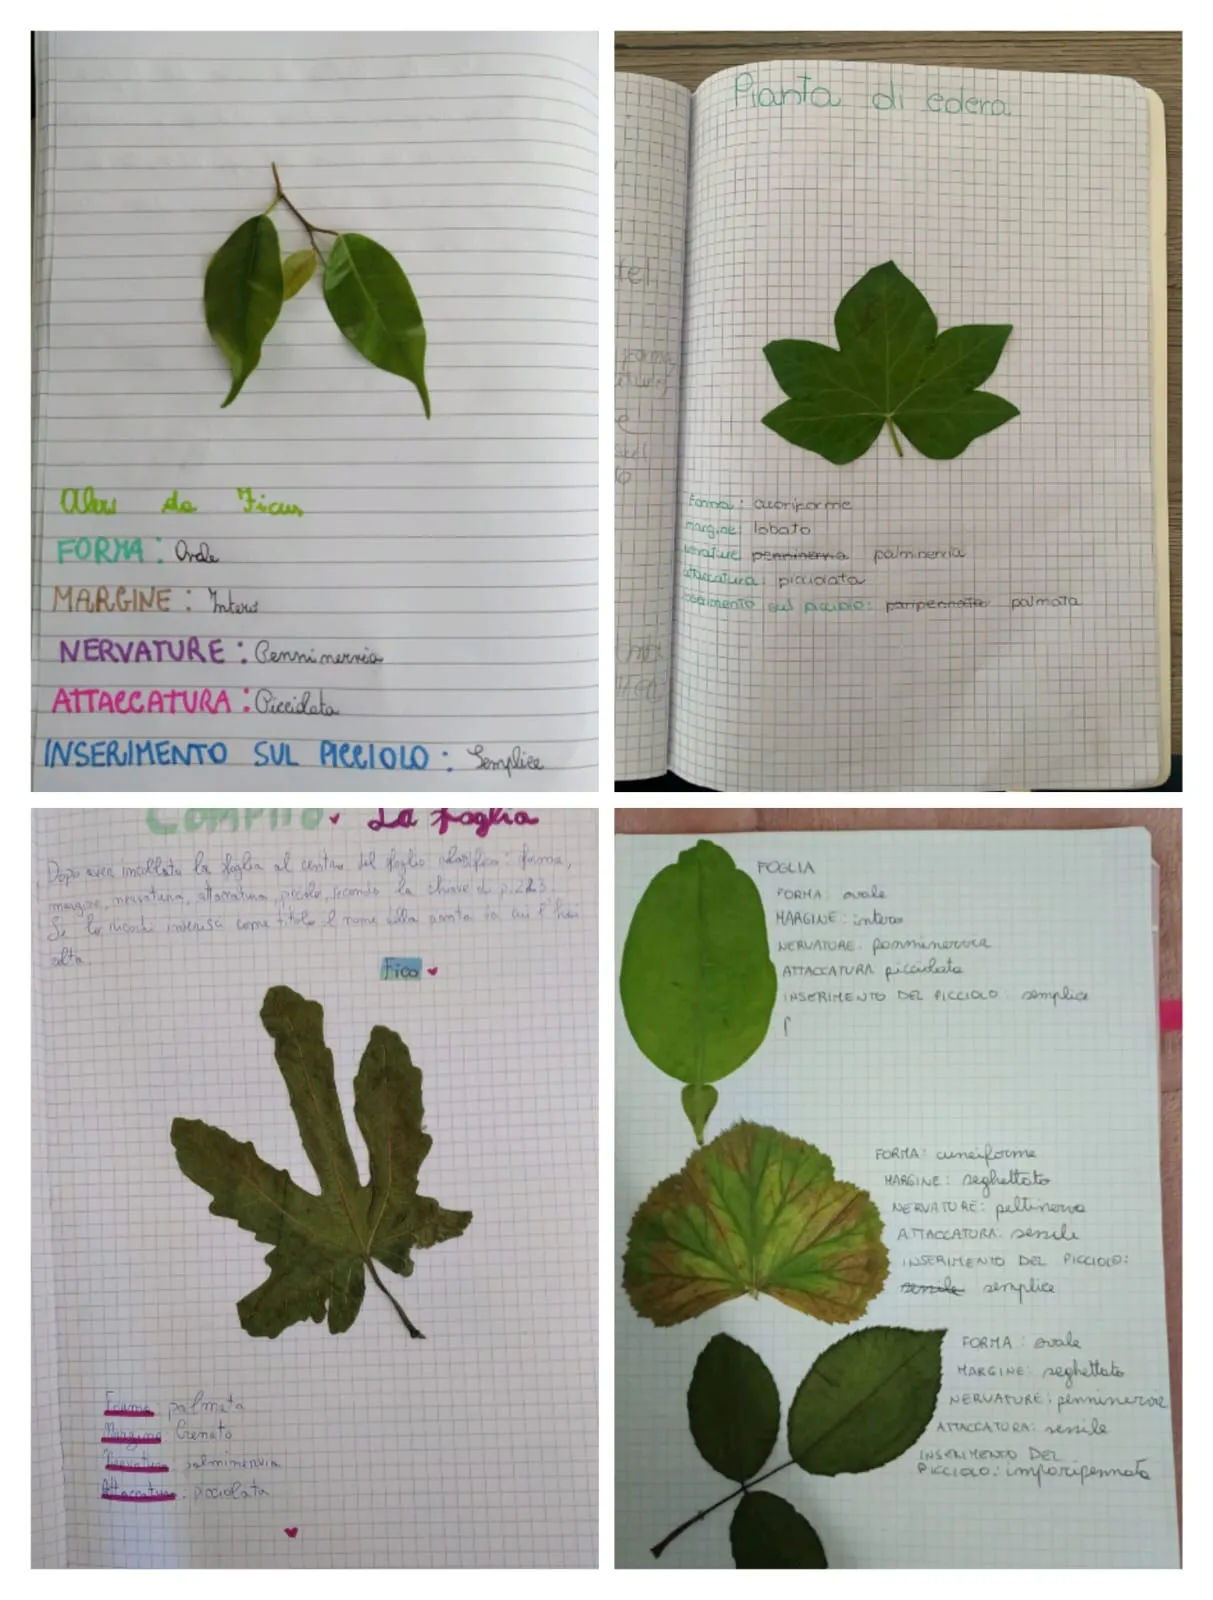 da Ficus
FORMA : Ovale
MARGINE : Intero
NERVATURE : Penninervia
ATTACCATURA : Picciolata
INSERIMENTO SUL PICCIOLO : Semplice
Pianta di edera
Forma : cuoriforme
margine: lobato
penninervia palminervia
attaccatura: picciolata
sul picciolo: paripennata palmata
COMPITO La foglia
Dopo aver incollato la foglia al centro del foglio classifica: forma,
margine, nervatura, attaccatura, secondo la chiave a p. 223.
Se la come titolo il nome della pianta da cui l'hai
Fico
Forma: palmata
Margine Crenato
Nervatura palminervia
Attaccatura: picciolata
FOGLIA
FORMA: ovale
MARGINE: intero
NERVATURE: penninervia
ATTACCATURA picciolata
INSERIMENTO DEL PICCIOLO semplice
FORMA: cuneiforme
MARGINE: seghettato
NERVATURE: peltinervia
ATTACCATURA: sessile
INSERIMENTO DEL PICCIOLO:
sessile semplice
FORMA: ovale
MARGINE: seghettato
NERVATURE: penninervie
ATTACCATURA: sessile
INSERIMENTO DEL
PICCIOLO: imparipennata